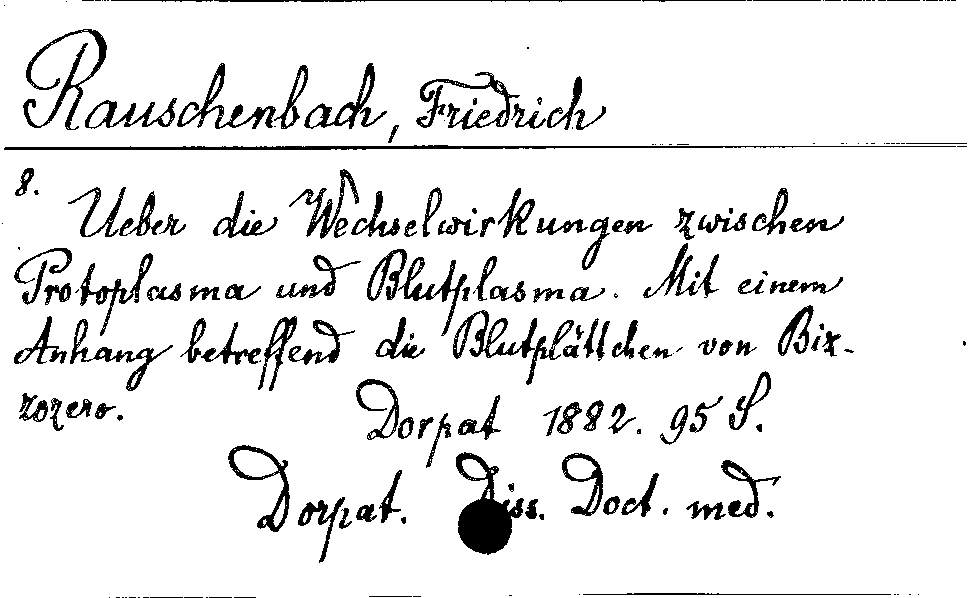 Rauschenbach, Friedrich
8.
Ueber die Wechselwirkungen zwischen
Protoplasma und Blutplasma. Mit einem
Anhang betreffend die Blutplättchen von Biz-
zozero.
Dorpat 1882. 95 S.
Dorpat. Diss. Doct. med.